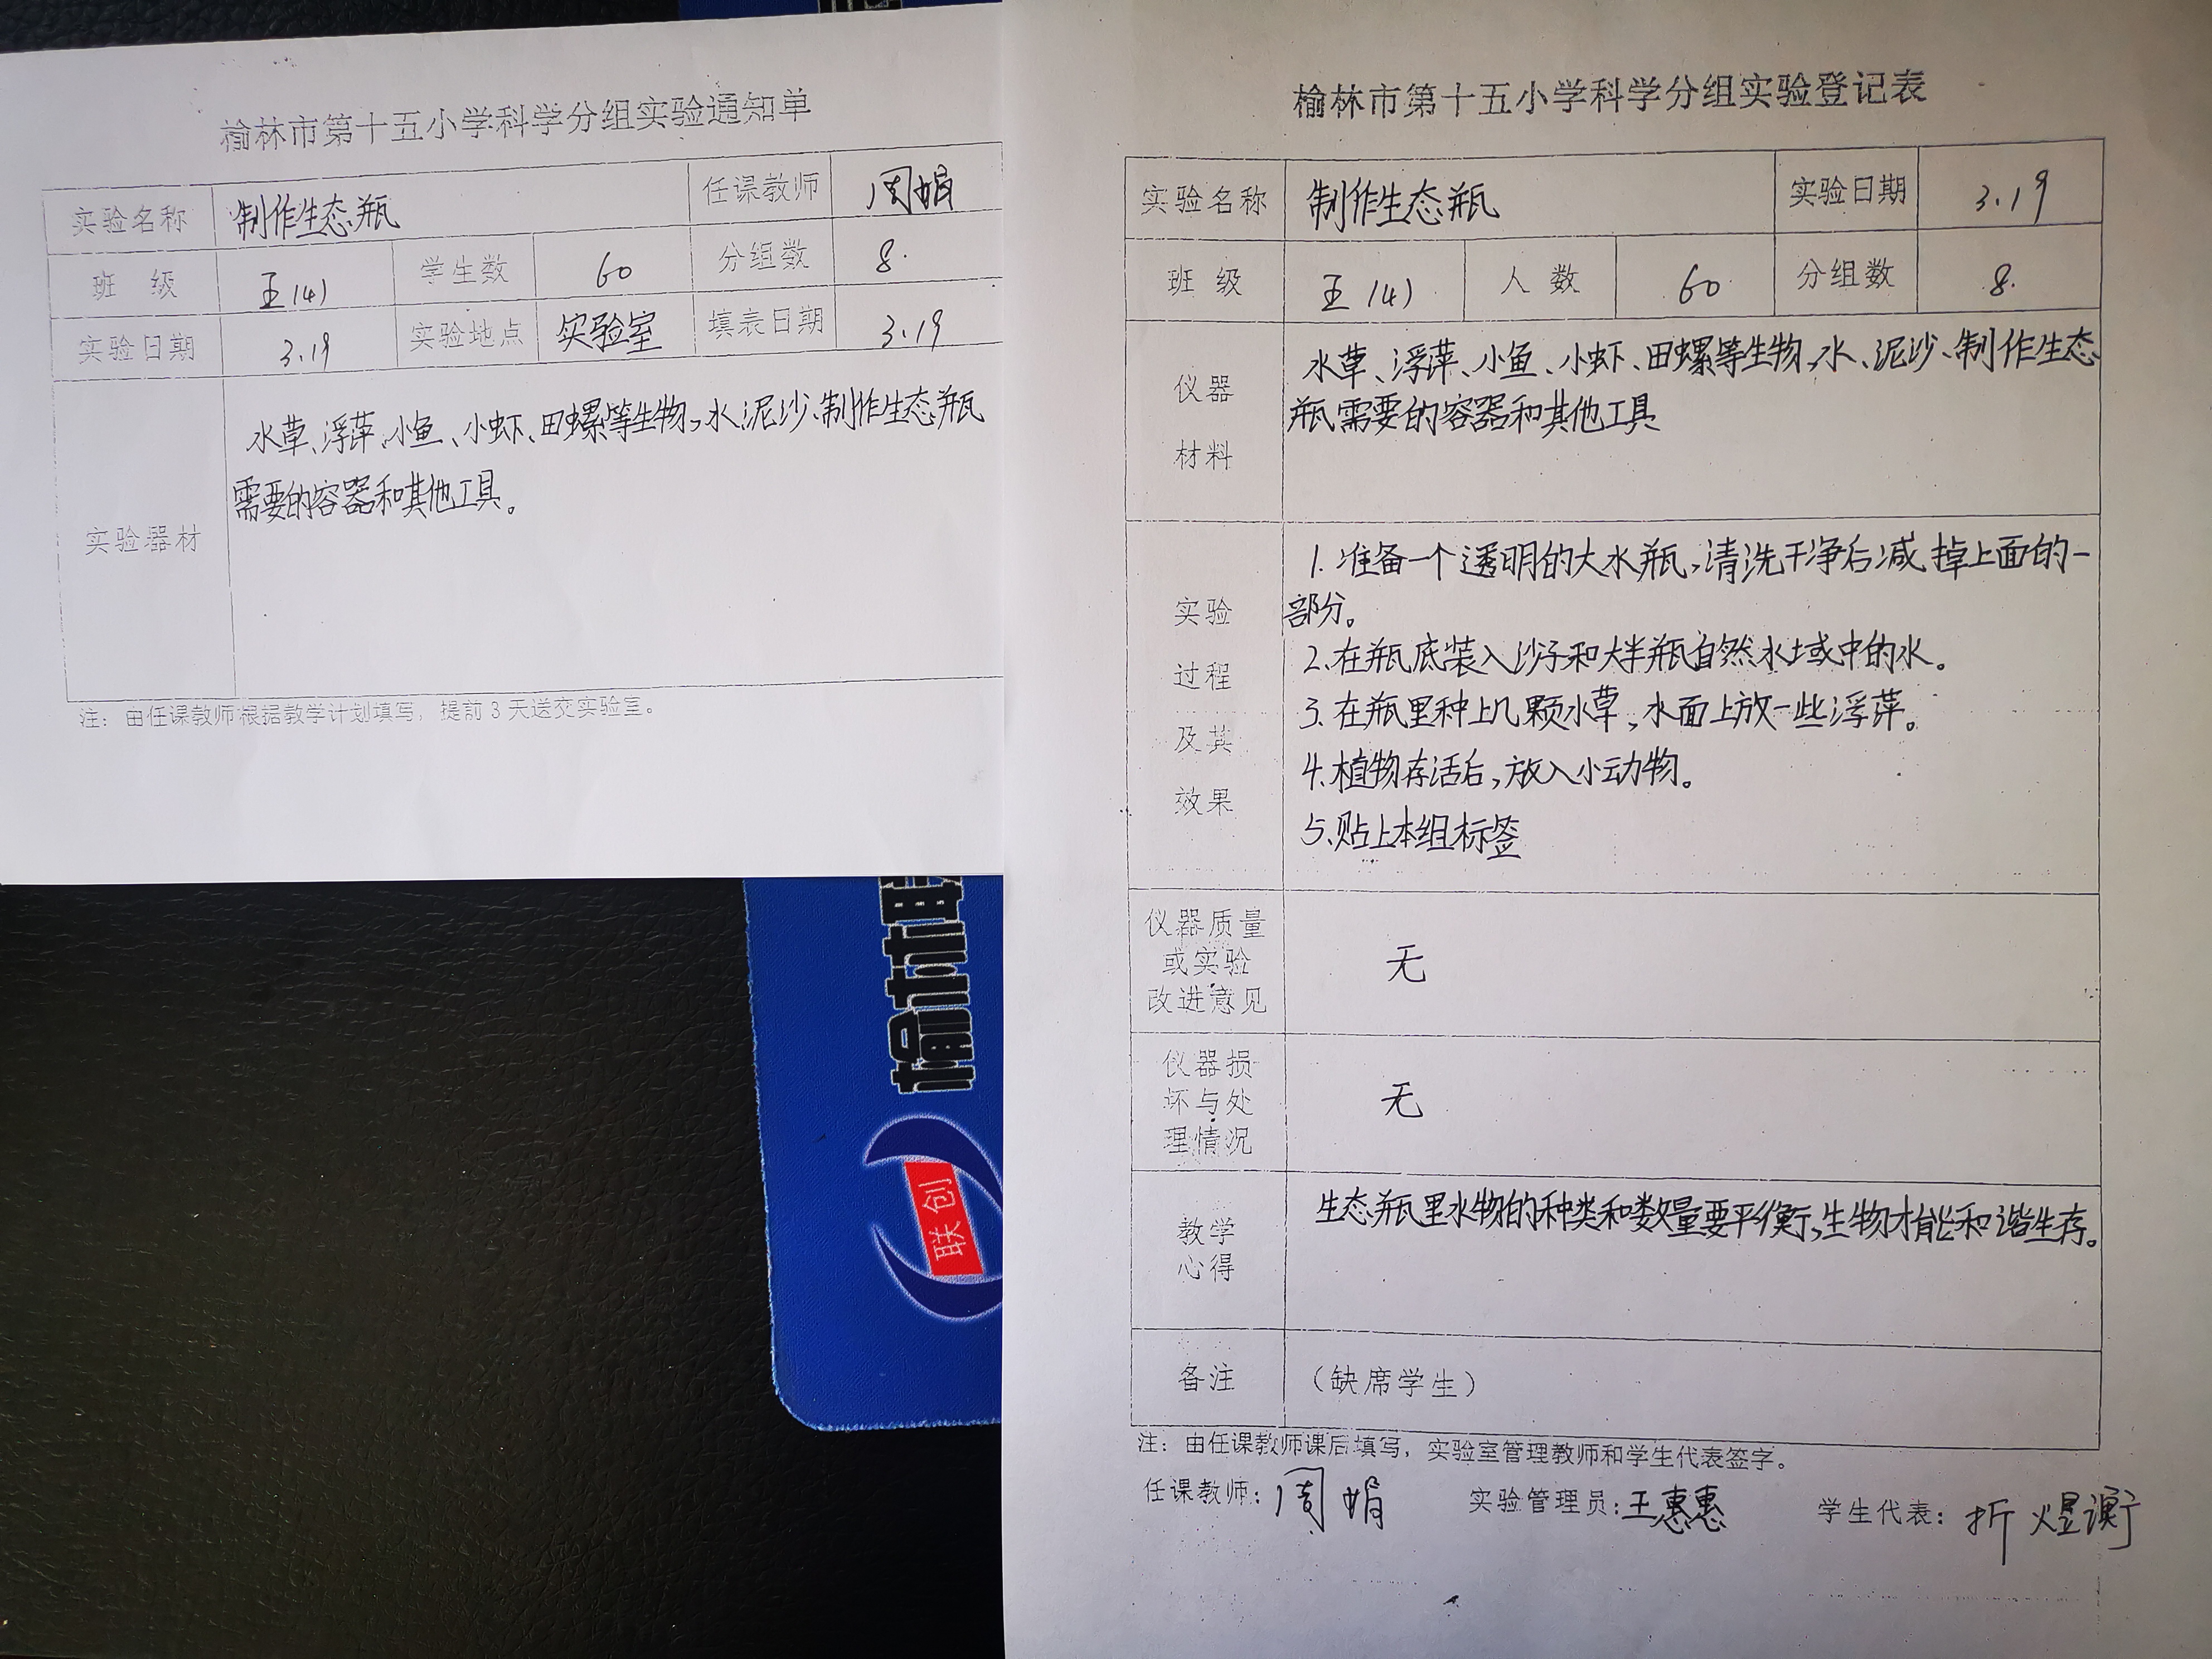 榆林市第十五小学科学分组实验通知单
实验名称 制作生态瓶 任课教师 周娟
班 级 五(4) 学生数 60 分组数 8.
实验日期 3.19 实验地点 实验室 填表日期 3.19
实验器材
水草、浮萍、小鱼、小虾、田螺等生物,水、泥沙、制作生态瓶
需要的容器和其他工具。
注：由任课教师根据教学计划填写，提前3天送交实验室。
榆林
联创
榆林市第十五小学科学分组实验登记表
实验名称 制作生态瓶 实验日期 3.19
班 级 五(4) 人 数 60 分组数 8.
仪器
材料
水草、浮萍、小鱼、小虾、田螺等生物,水、泥沙、制作生态
瓶需要的容器和其他工具
实验
过程
及其
效果
1.准备一个透明的大水瓶,清洗干净后减掉上面的一
部分。
2.在瓶底装入沙子和大半瓶自然水域中的水。
3.在瓶里种上几颗水草,水面上放一些浮萍。
4.植物存活后,放入小动物。
5.贴上本组标签
仪器质量
或实验
改进意见
无
仪器损
坏与处
理情况
无
教学
心得
生态瓶里水物的种类和数量要平衡,生物才能和谐生存。
备注 （缺席学生）
注：由任课教师课后填写，实验室管理教师和学生代表签字。
任课教师：周娟 实验管理员：王惠惠 学生代表：折煜